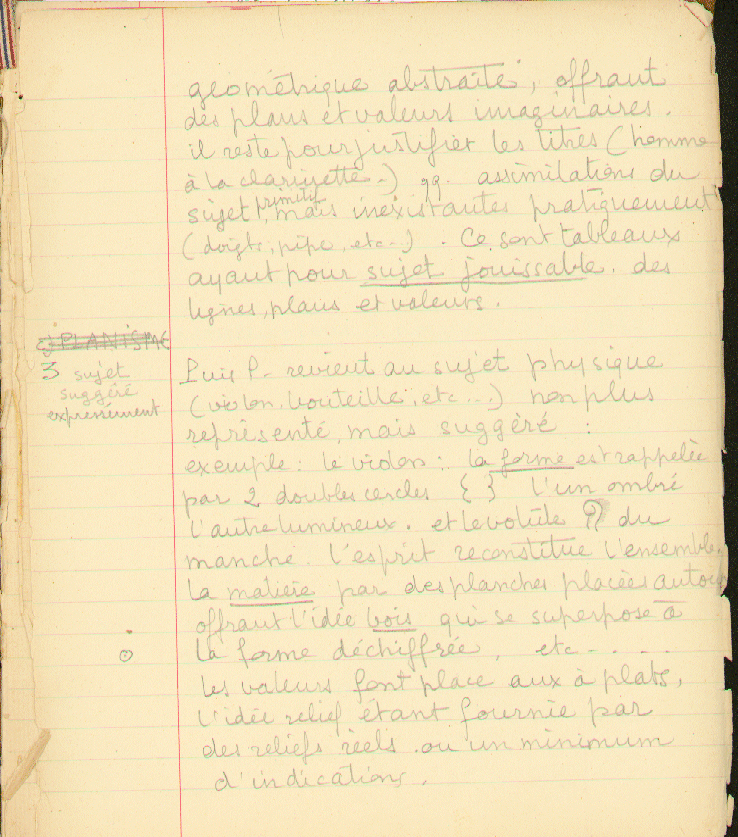 géométrique abstraite, offrant
des plans et valeurs imaginaires.
il reste pour justifier les titres (homme
à la clarinette -) qq. assimilations du
sujet primitif, mais inexistantes pratiquement
(doigts, pipe, etc --) . Ce sont tableaux
ayant pour sujet jouissable. des
lignes, plans et valeurs.
PLANISME
3 sujet
suggéré
expressément
Puis P- revient au sujet physique
(violon, bouteille, etc ...) non plus
représenté, mais suggéré :
exemple : le violon : la forme est rappelée
par 2 doubles cercles { } l'un ombré
l'autre lumineux. et le volute du
manche. l'esprit reconstitue l'ensemble.
La matière par des planches placées autour
offrant l'idée bois qui se superpose à
la forme déchiffrée, etc - . . .
les valeurs font place aux à plats,
l'idée relief étant fournie par
des reliefs réels. ou un minimum
d'indications.